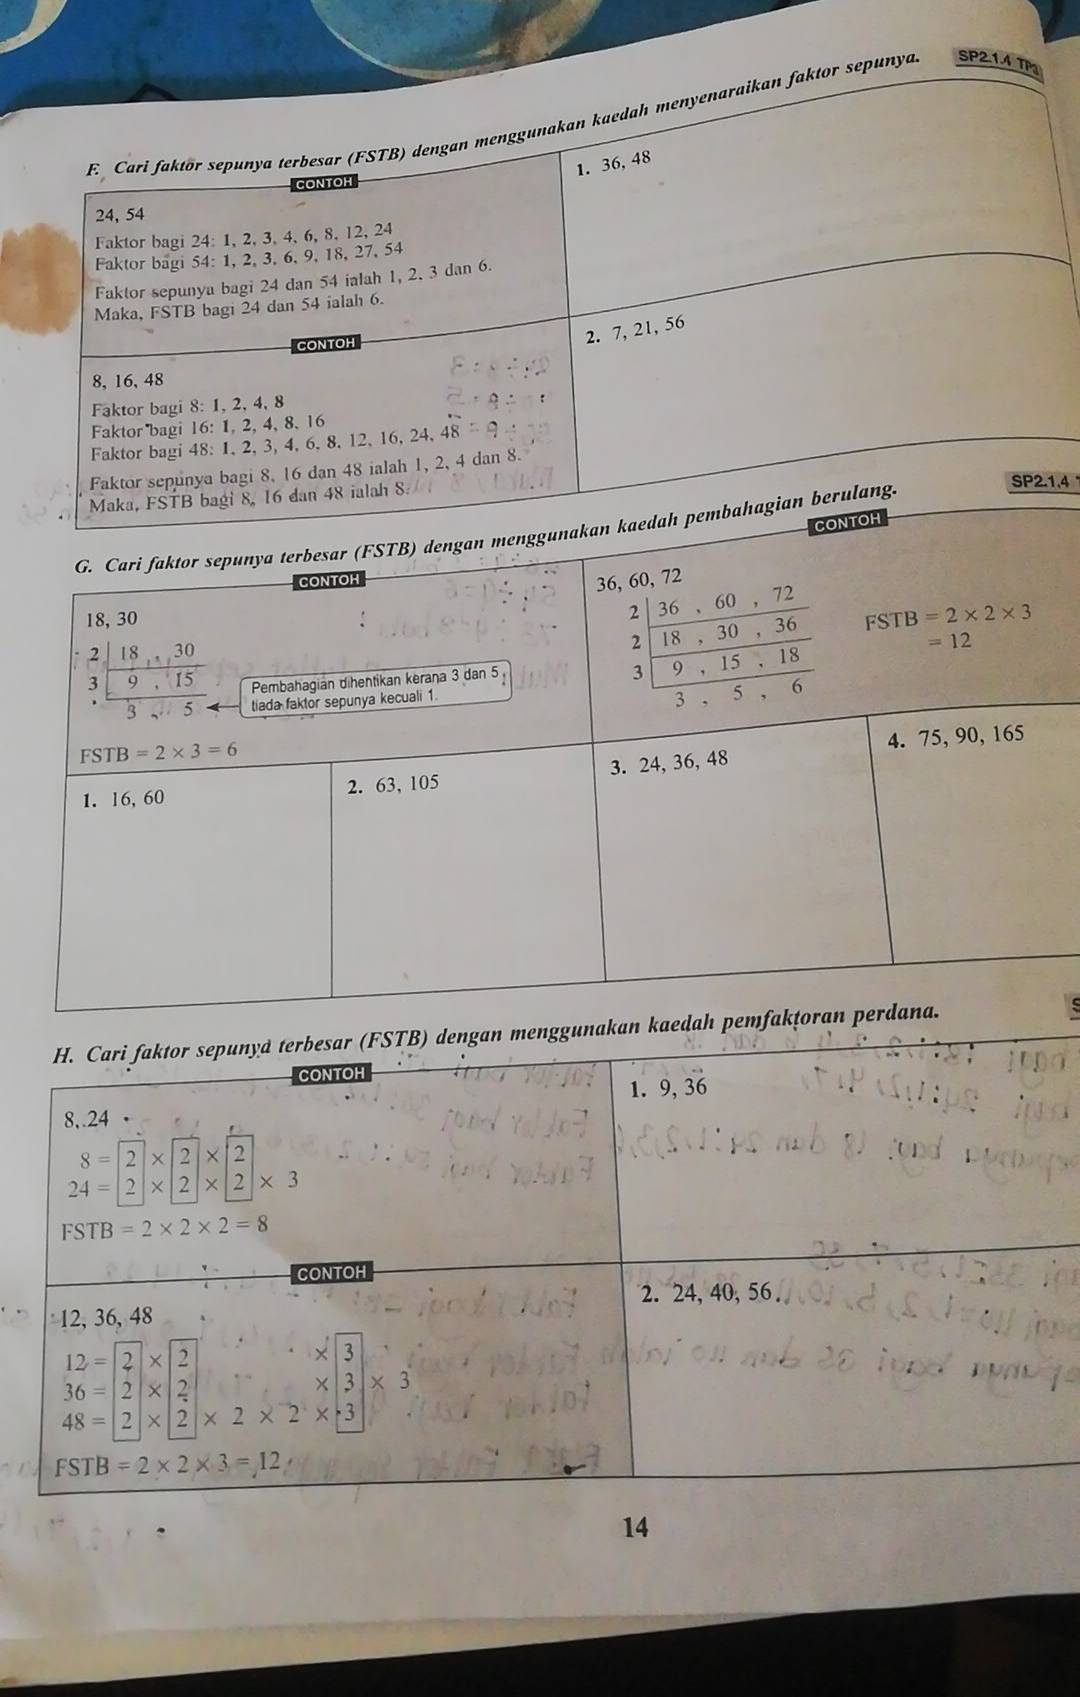 SP2.1.4 TP3
F. Cari faktor sepunya terbesar (FSTB) dengan menggunakan kaedah menyenaraikan faktor sepunya.
CONTOH
24, 54
Faktor bagi 24: 1, 2, 3, 4, 6, 8, 12, 24
Faktor bagi 54: 1, 2, 3, 6, 9, 18, 27, 54
Faktor sepunya bagi 24 dan 54 ialah 1, 2, 3 dan 6.
Maka, FSTB bagi 24 dan 54 ialah 6.
1. 36, 48
CONTOH
8, 16, 48
Faktor bagi 8: 1, 2, 4, 8
Faktor bagi 16: 1, 2, 4, 8, 16
Faktor bagi 48: 1, 2, 3, 4, 6, 8, 12, 16, 24, 48
Faktor sepunya bagi 8, 16 dan 48 ialah 1, 2, 4 dan 8.
Maka, FSTB bagi 8, 16 dan 48 ialah 8.
2. 7, 21, 56
SP2.1.4
G. Cari faktor sepunya terbesar (FSTB) dengan menggunakan kaedah pembahagian berulang.
CONTOH
18, 30
2 | 18 , 30
3 | 9 , 15
3 , 5
Pembahagian dihentikan kerana 3 dan 5
tiada faktor sepunya kecuali 1.
FSTB = 2 × 3 = 6
CONTOH
36, 60, 72
2 | 36 , 60 , 72
2 | 18 , 30 , 36
3 | 9 , 15 , 18
3 , 5 , 6
FSTB = 2 × 2 × 3
= 12
1. 16, 60
2. 63, 105
3. 24, 36, 48
4. 75, 90, 165
H. Cari faktor sepunya terbesar (FSTB) dengan menggunakan kaedah pemfaktoran perdana.
CONTOH
8, 24
8 = 2 × 2 × 2
24 = 2 × 2 × 2 × 3
FSTB = 2 × 2 × 2 = 8
1. 9, 36
CONTOH
12, 36, 48
12 = 2 × 2 × 3
36 = 2 × 2 × 3 × 3
48 = 2 × 2 × 2 × 2 × 3
FSTB = 2 × 2 × 3 = 12
2. 24, 40, 56
14